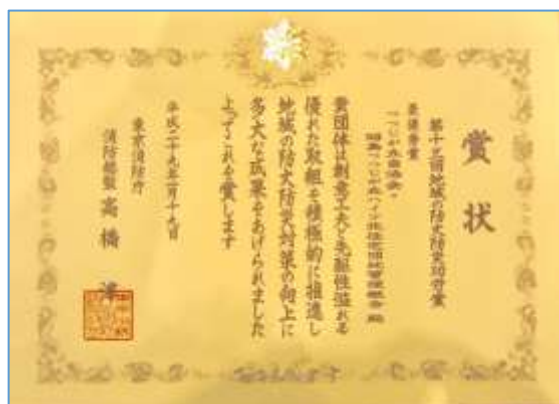 賞状
第十三回地域の防火防災功労賞
優秀賞
つつじが丘自治会・
貴団体は創意工夫と先駆性溢れる
優れた取組を積極的に推進し
地域の防火防災対策の向上に
多大な成果をあげられました
よってこれを賞します
平成二十九年一月十九日
東京消防庁
消防総監 高橋 淳